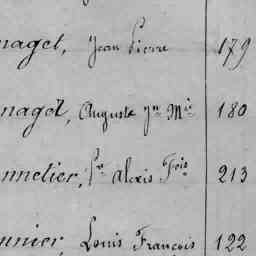 naget, Jean Pierre 179
naget, Auguste Jn Mie 180
nnetier, Pre Alexis Fois 213
nnier, Louis François 122